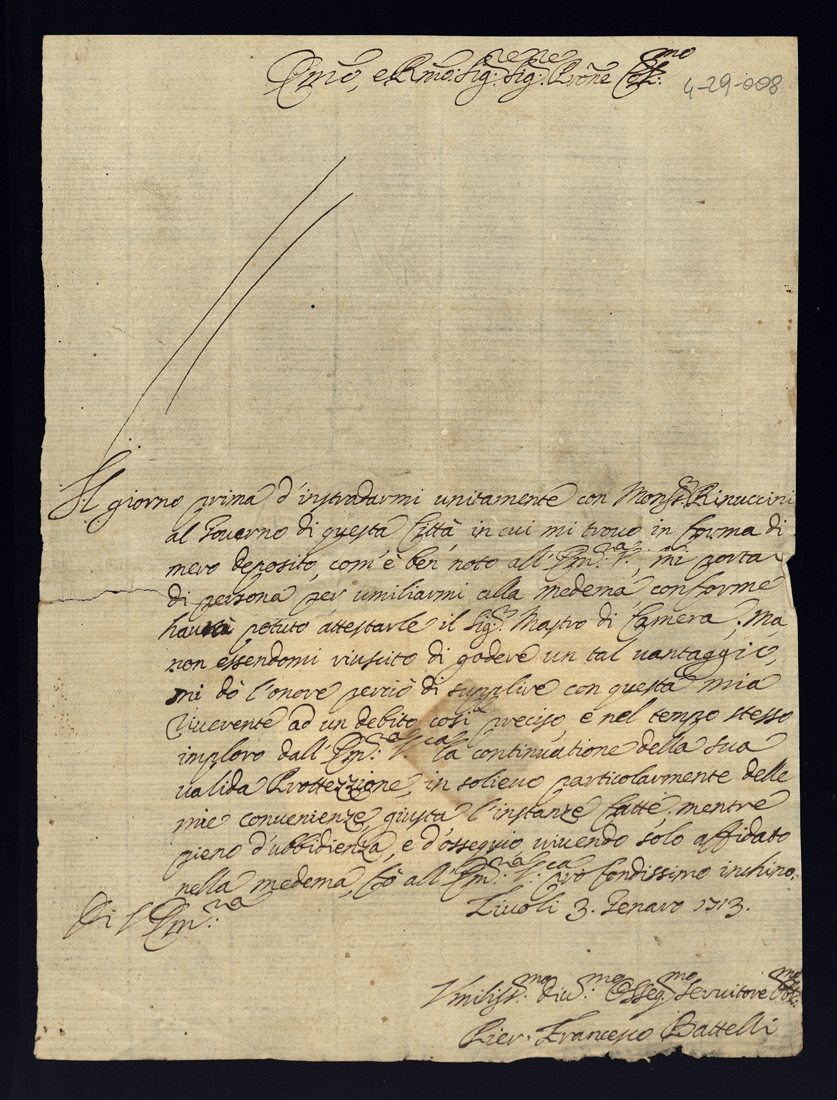 Em̃o, e Rmo: Sig:re Sig:re Prõne Col:mo
4-29-008
Il giorno prima d'instradarmi unitamente con Mons:r Rinuccini
al Governo di questa Città, in cui mi trovo in forma di
mero deposito, com'è ben noto all'Em:za V:, mi portai
di persona per umiliarmi alla medema conforme
haurà potuto attestarle il Sig:r Mastro di Camera; Ma
non essendomi riuscito di godere un tal vantaggio,
mi dò l'onore perciò di supplire con questa mia
riverente ad un debito così preciso, e nel tempo stesso
imploro dall'Em:za V:ra la continuatione della sua
valida Prottezzione, in solievo particolarmente delle
mie convenienze, giusta l'instanze fatte, mentre
pieno d'ubbidienza, e d'ossequio, vivendo solo affidato
nella medema, fò all'Em:za V:ra profondissimo inchino.
Di V Em:za
Tivoli 3. Genaro 1713.
Vmiliss:mo diu:mo Osseq:mo Servitore Obl:mo
Pier. Francesco Battelli